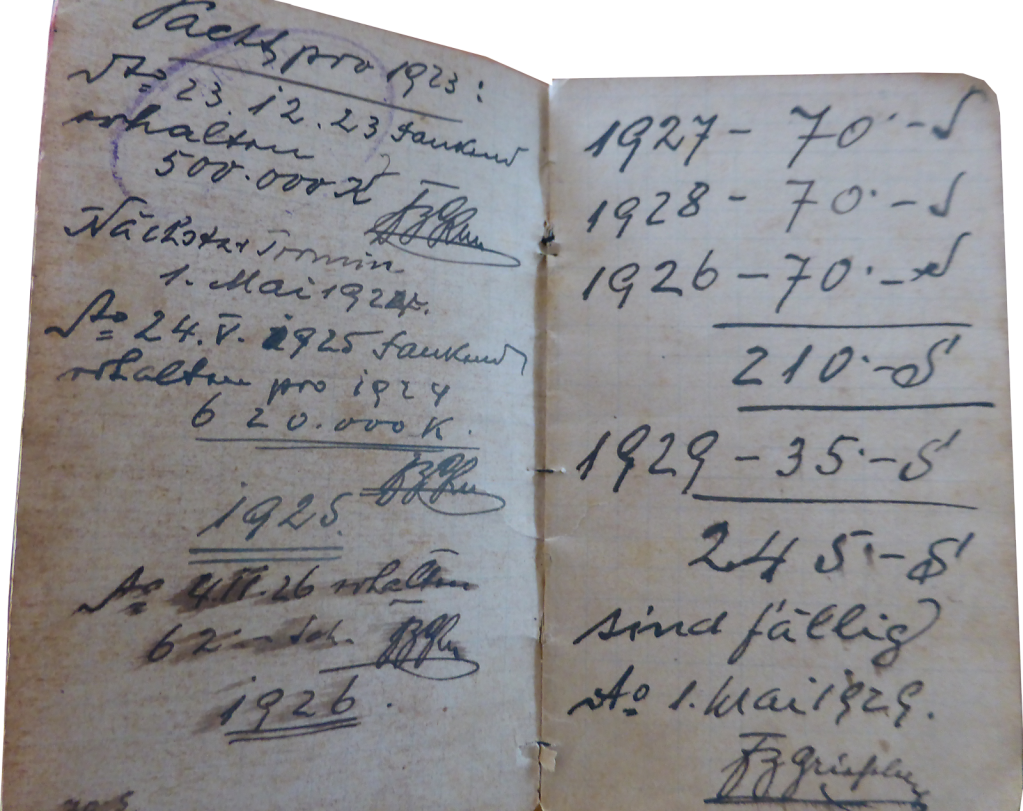 Pacht pro 1923:
Ao 23. 12. 23 dankend
erhalten
500.000 K
Nächster Termin
1. Mai 1924.
Ao 24. V. 1925 dankend
erhalten pro 1924
620.000 K.
1925
Ao 4. II. 26 erhalten
62 — Sch.
1926.
1927 - 70.- S
1928 - 70.- S
1926 - 70.- S
210.- S
1929 - 35.- S
245.- S
sind fällig
Ao 1. Mai 1929.